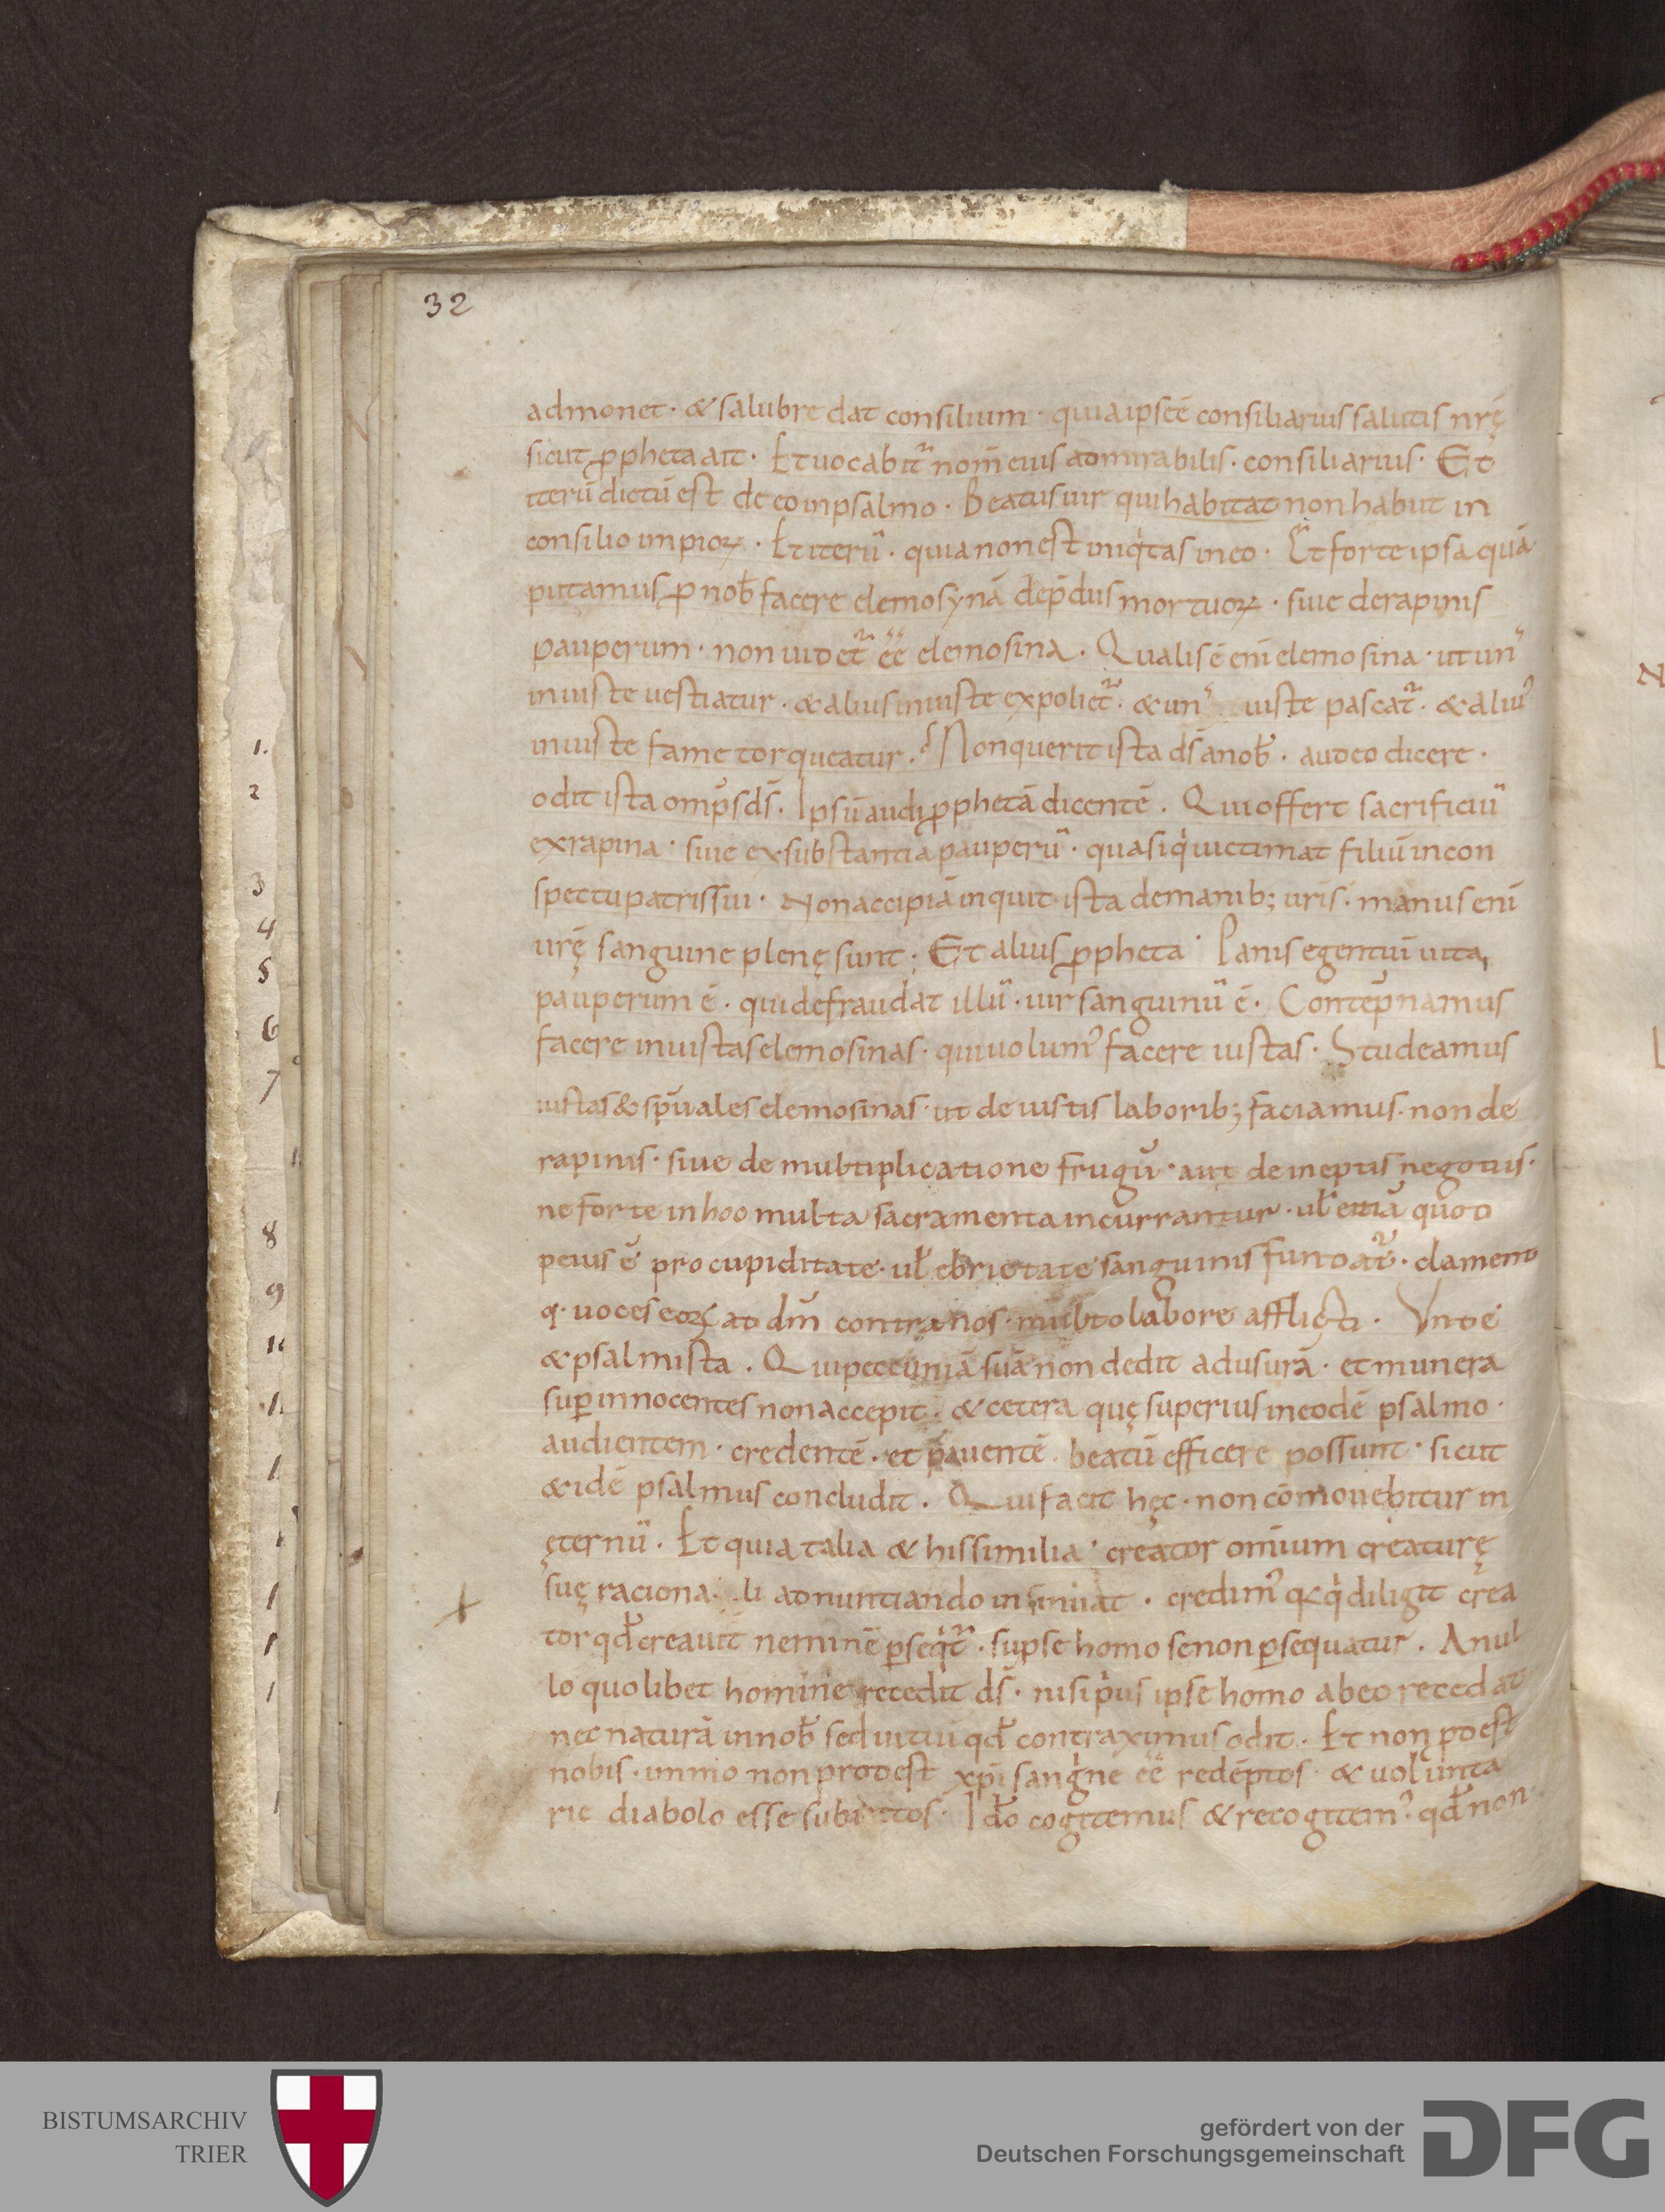 32
admonet · & salubre dat consilium · quia ipse ē consiliarius salutis nrę̄
sicut ꝓpheta ait · Et uocabit᷑ nom̄ eius admirabilis · consiliarius · Et
iterū dictū est de eo in psalmo · Beatus uir qui habitat non habiit in
consilio impioꝝ · Et iterū · quia non est iniqͥtas in eo · Et forte ipsa quā
putamus ꝓ nob̄ facere elemosynā de p̄dus mortuoꝝ · siue de rapinis
pauperum · non uidet᷑ ēē elemosina · Qualis ē eni elemosina · ut unꝰ
iniuste uestiatur · & alius iniuste expoliet᷑ · & unꝰ iuste pascat᷑ · & aliuꝰ
iniuste fame torqueatur · Non querit ista ds̄ a nob̄ · audeo dicere ·
odit ista omp̄s ds̄ · Ipsū audi ꝓphetā dicentē · Qui offert sacrificiū
ex rapina · siue ex substantia pauperū · quasi qͥ uictimat filiū in con
spectu patris sui · Non accipiā inquit ista de manib; uris̄ · manus eni
urę̄ sanguine plenę sunt · Et alius ꝓpheta · Panis egentiū uita
pauperum ē · qui defraudat illū · uir sanguinū ē · Contēpnamus
facere iniustas elemosinas · qui uolumꝰ facere iustas · Studeamus
iustas & sp̄uales elemosinas · ut de iustis laborib; faciamus · non de
rapinis · siue de multiplicatione frugū · aut de ineptis negotiis ·
ne forte in hoc multa sacramenta incurrantur · ul̄ etiā quod
peius ē pro cupiditate · ul̄ ebrietate sanguinis fundat᷑ · clament
q · uoces eoꝝ ad dn̄i contra nos · multo labore afflicti · Vnde
& psalmista · Qui peccuniā suā non dedit ad usurā · et munera
suꝑ innocentes non accepit · & cetera quę superius in eodē psalmo ·
audientem · credentē · et pauentē · beatū efficere possunt · sicut
& idē psalmus concludit · Qui facit hęc · non cōmouebitur in
ęternū · Et quia talia & his similia · creator omium creaturę
suę raciona li adnuntiando insinuat · credimꝰ qd̄ qͥ diligit crea
tor qd̄ creauit neminē ꝑseqͥt᷑ · si ipse homo se non ꝑsequatur · A nul
lo quolibet homine recedit ds̄ · nisi pͥus ipse homo ab eo recedat
nec naturā in nob̄ sed uitiū qd̄ contraximus odit · Et non potest
nobis · immo non prodest xp̄i sangͥne ēē redēptos · & uolunta
rie diabolo esse subiectos · Ido̅ cogitemus & recogitemꝰ · qd̄ non
1.
2
3
4
5
6
7
8
9
BISTUMSARCHIV
TRIER
gefördert von der
Deutschen Forschungsgemeinschaft
DFG